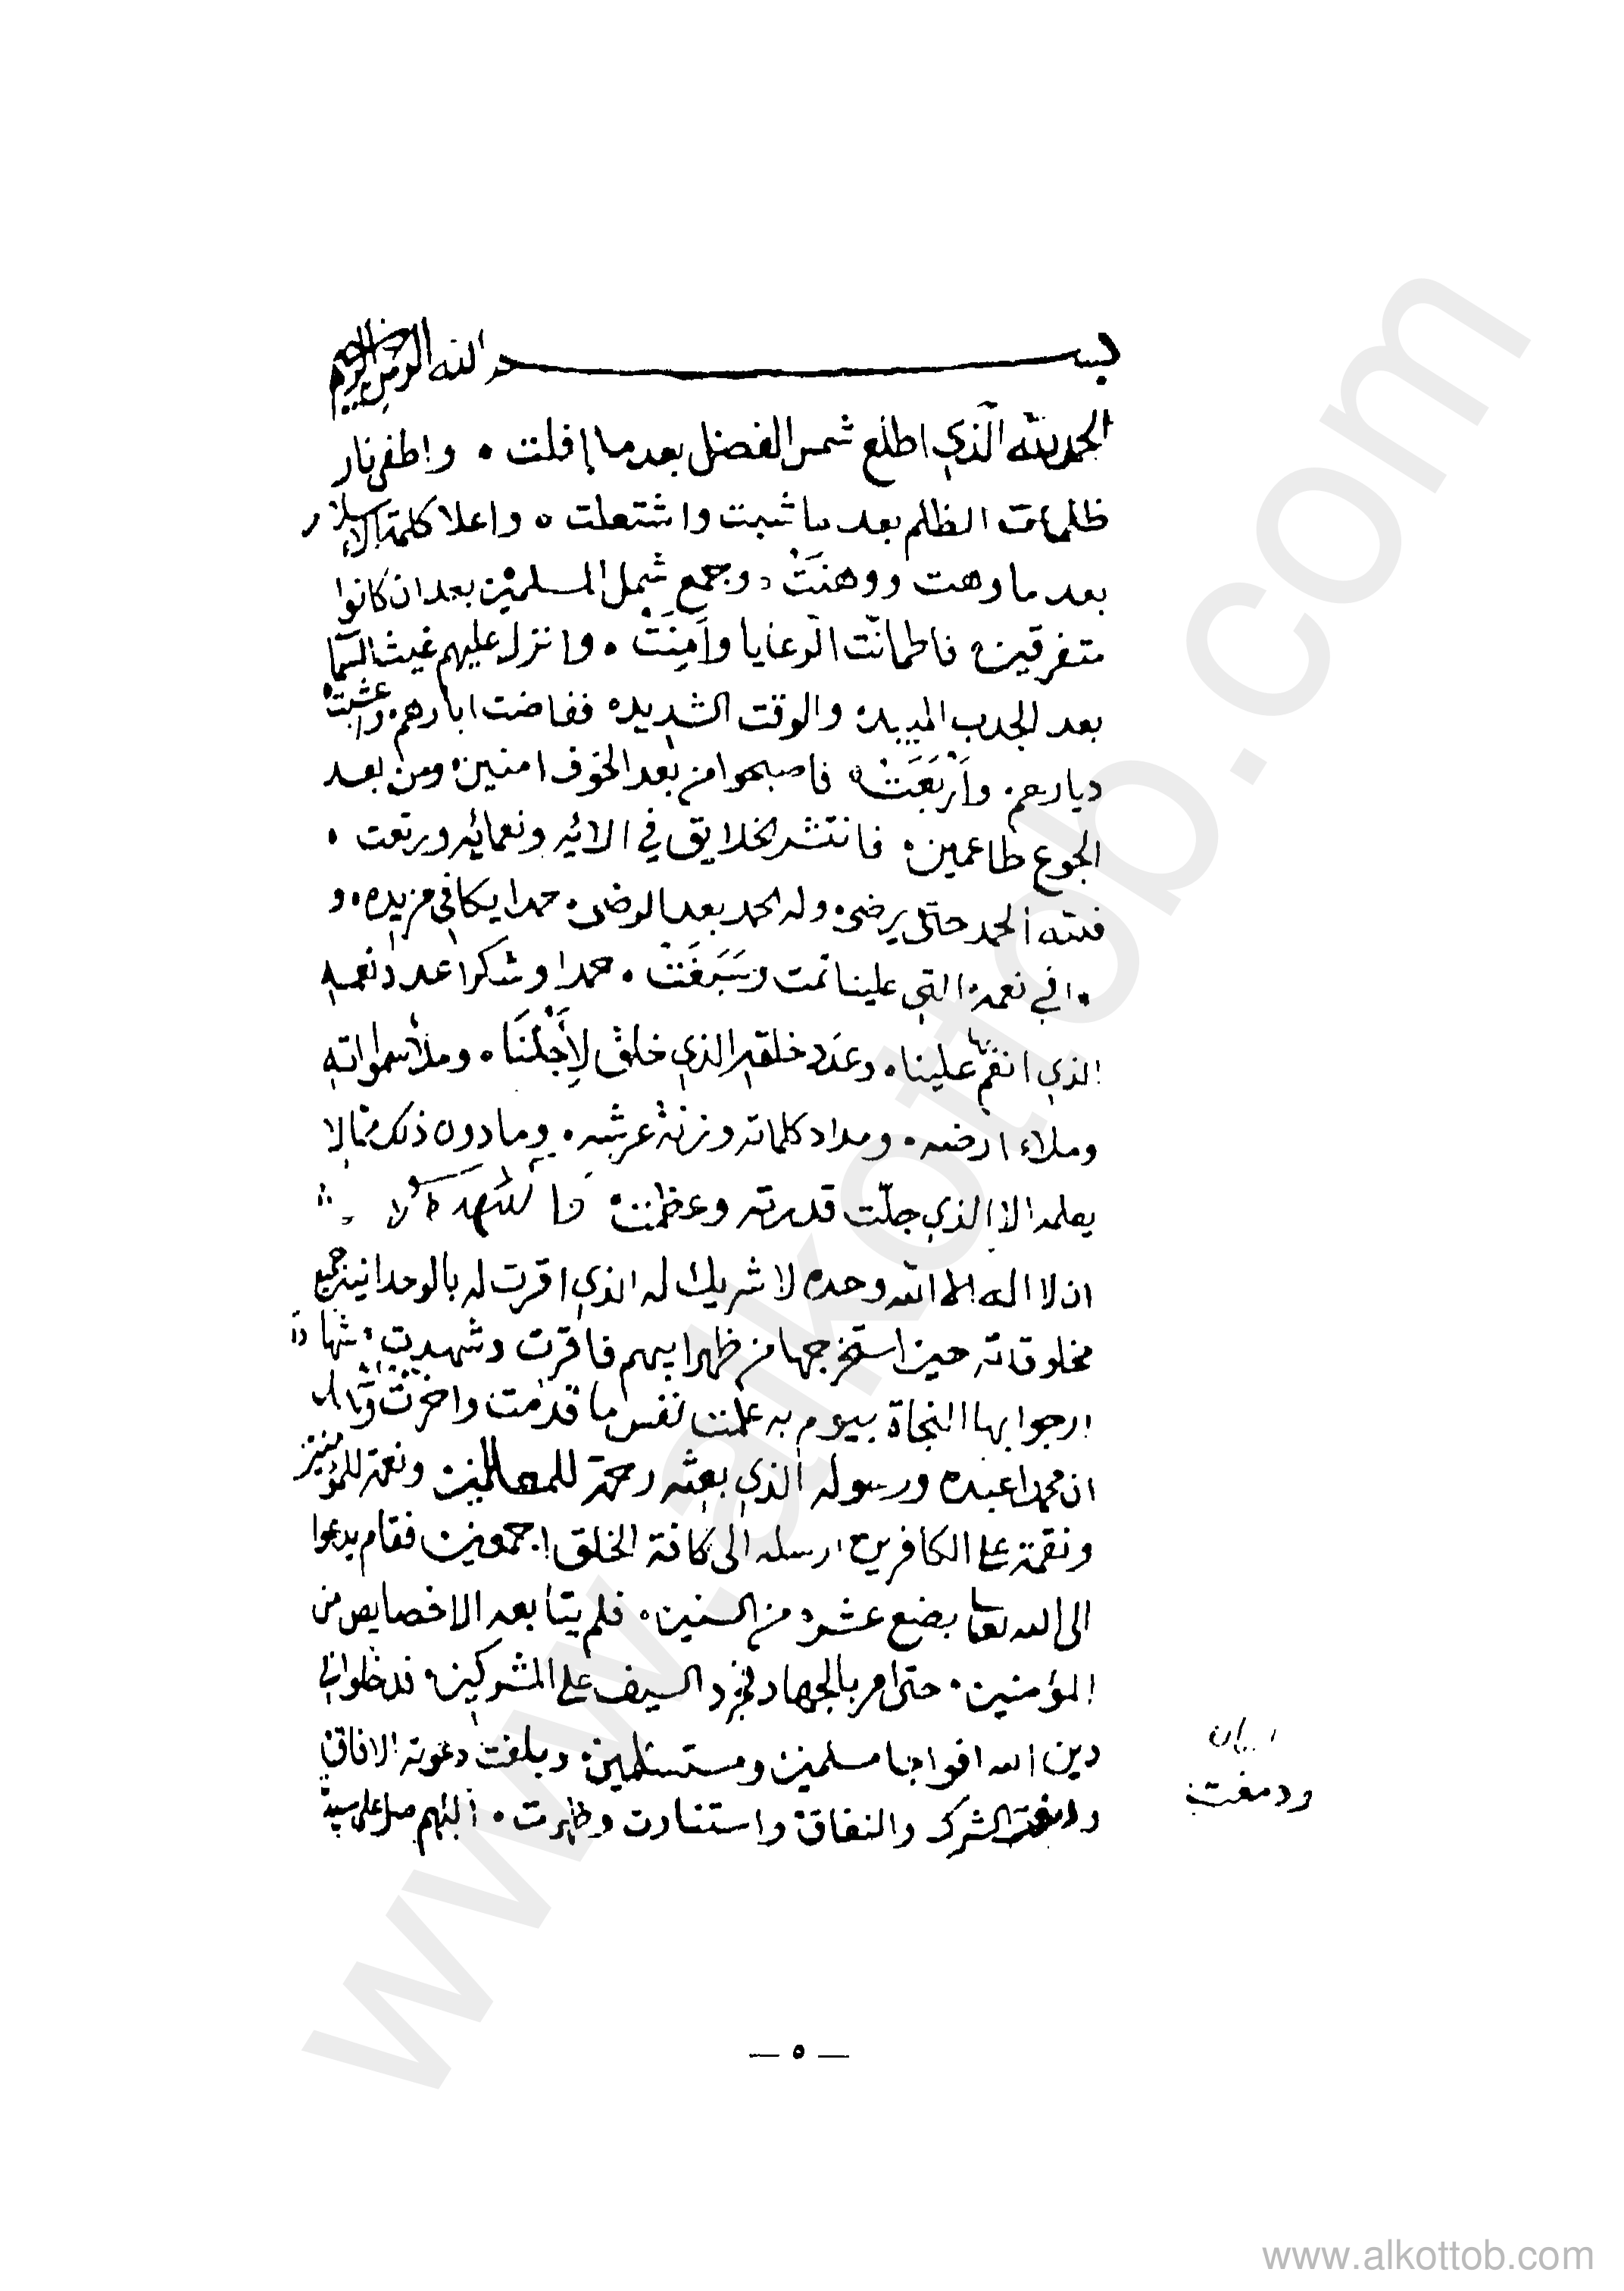 بسم الله الرحمن الرحيم
الحمد لله الّذي اطلع شمس الفضل بعد ما افلت ٥ واطفى نار
ظلمات الظلم بعد ما شبت واشتعلت ٥ واعلا كلمة الاسلام
بعد ما وهت ووهنَتْ ٥ وجمع شمل المسلمين بعد ان كانوا
متفرقين ٥ فاطمانّت الرّعايا وآمِنَتْ ٥ وانزل عليهم غيث السما
بعد الجدب المبيد ٥ والوقت الشديد ٥ ففاضت ابارهم ٥ واعشبت
ديارهم ٥ وأَرْبَعَتْ ٥ فاصبحوا من بعد الخوف امنين ٥ ومن بعد
الجوع طاعمين ٥ فانتشر الخلايق في الائه ونعمائه ورتعت ٥
فلله الحمد حتى يرضى ٥ وله الحمد بعد الرضى ٥ حمدا يكافي مزيده ٥ و
يوافي نعمه التي علينا تمت وسَبَغَتْ ٥ حمدا وشكرا عدد نعمه
الذي انعم بها علينا ٥ وعدد خلقه الذي خلق لِأَجْلِنَا ٥ وملأ سمواته
وملاء ارضه ٥ ومداد كلماته وزنة عرشه ٥ وما دون ذلك ممّا لا
يعلمه الا الذي جلّت قدرته وعظمت ٥
ان لا اله الا الله وحده لا شريك له الذي اقرت له بالوحدانية جميع
مخلوقاته حين استخرجها من ظهر ابيهم فاقرت وشهدت ٥ شهادة
ارجوا بها النجاة بيوم به علمت نفس ما قدمت واخرت
ان محمدا عبده ورسوله الذي بعثه رحمة للعالمين ونعمة للمؤمنين
ونقمة على الكافرين ارسله الى كافة الخلق اجمعين فقام يدعوا
الى الله تعالى بضع عشرة من السنين ٥ فلم يتابعه الا خصايص من
المؤمنين ٥ حتى امر بالجهاد فجرد السيف على المشركين ٥ فدخلوا في
دين الله افواجا مسلمين ومستسلمين ٥ وبلغت دعوته الافاق
ودمغت الشرك والنفاق واستنارت وظهرت ٥ اللهم صل على سيدنا
بيان
ودمغت
— ٥ —
www.alkottob.com
www.alkottob.com